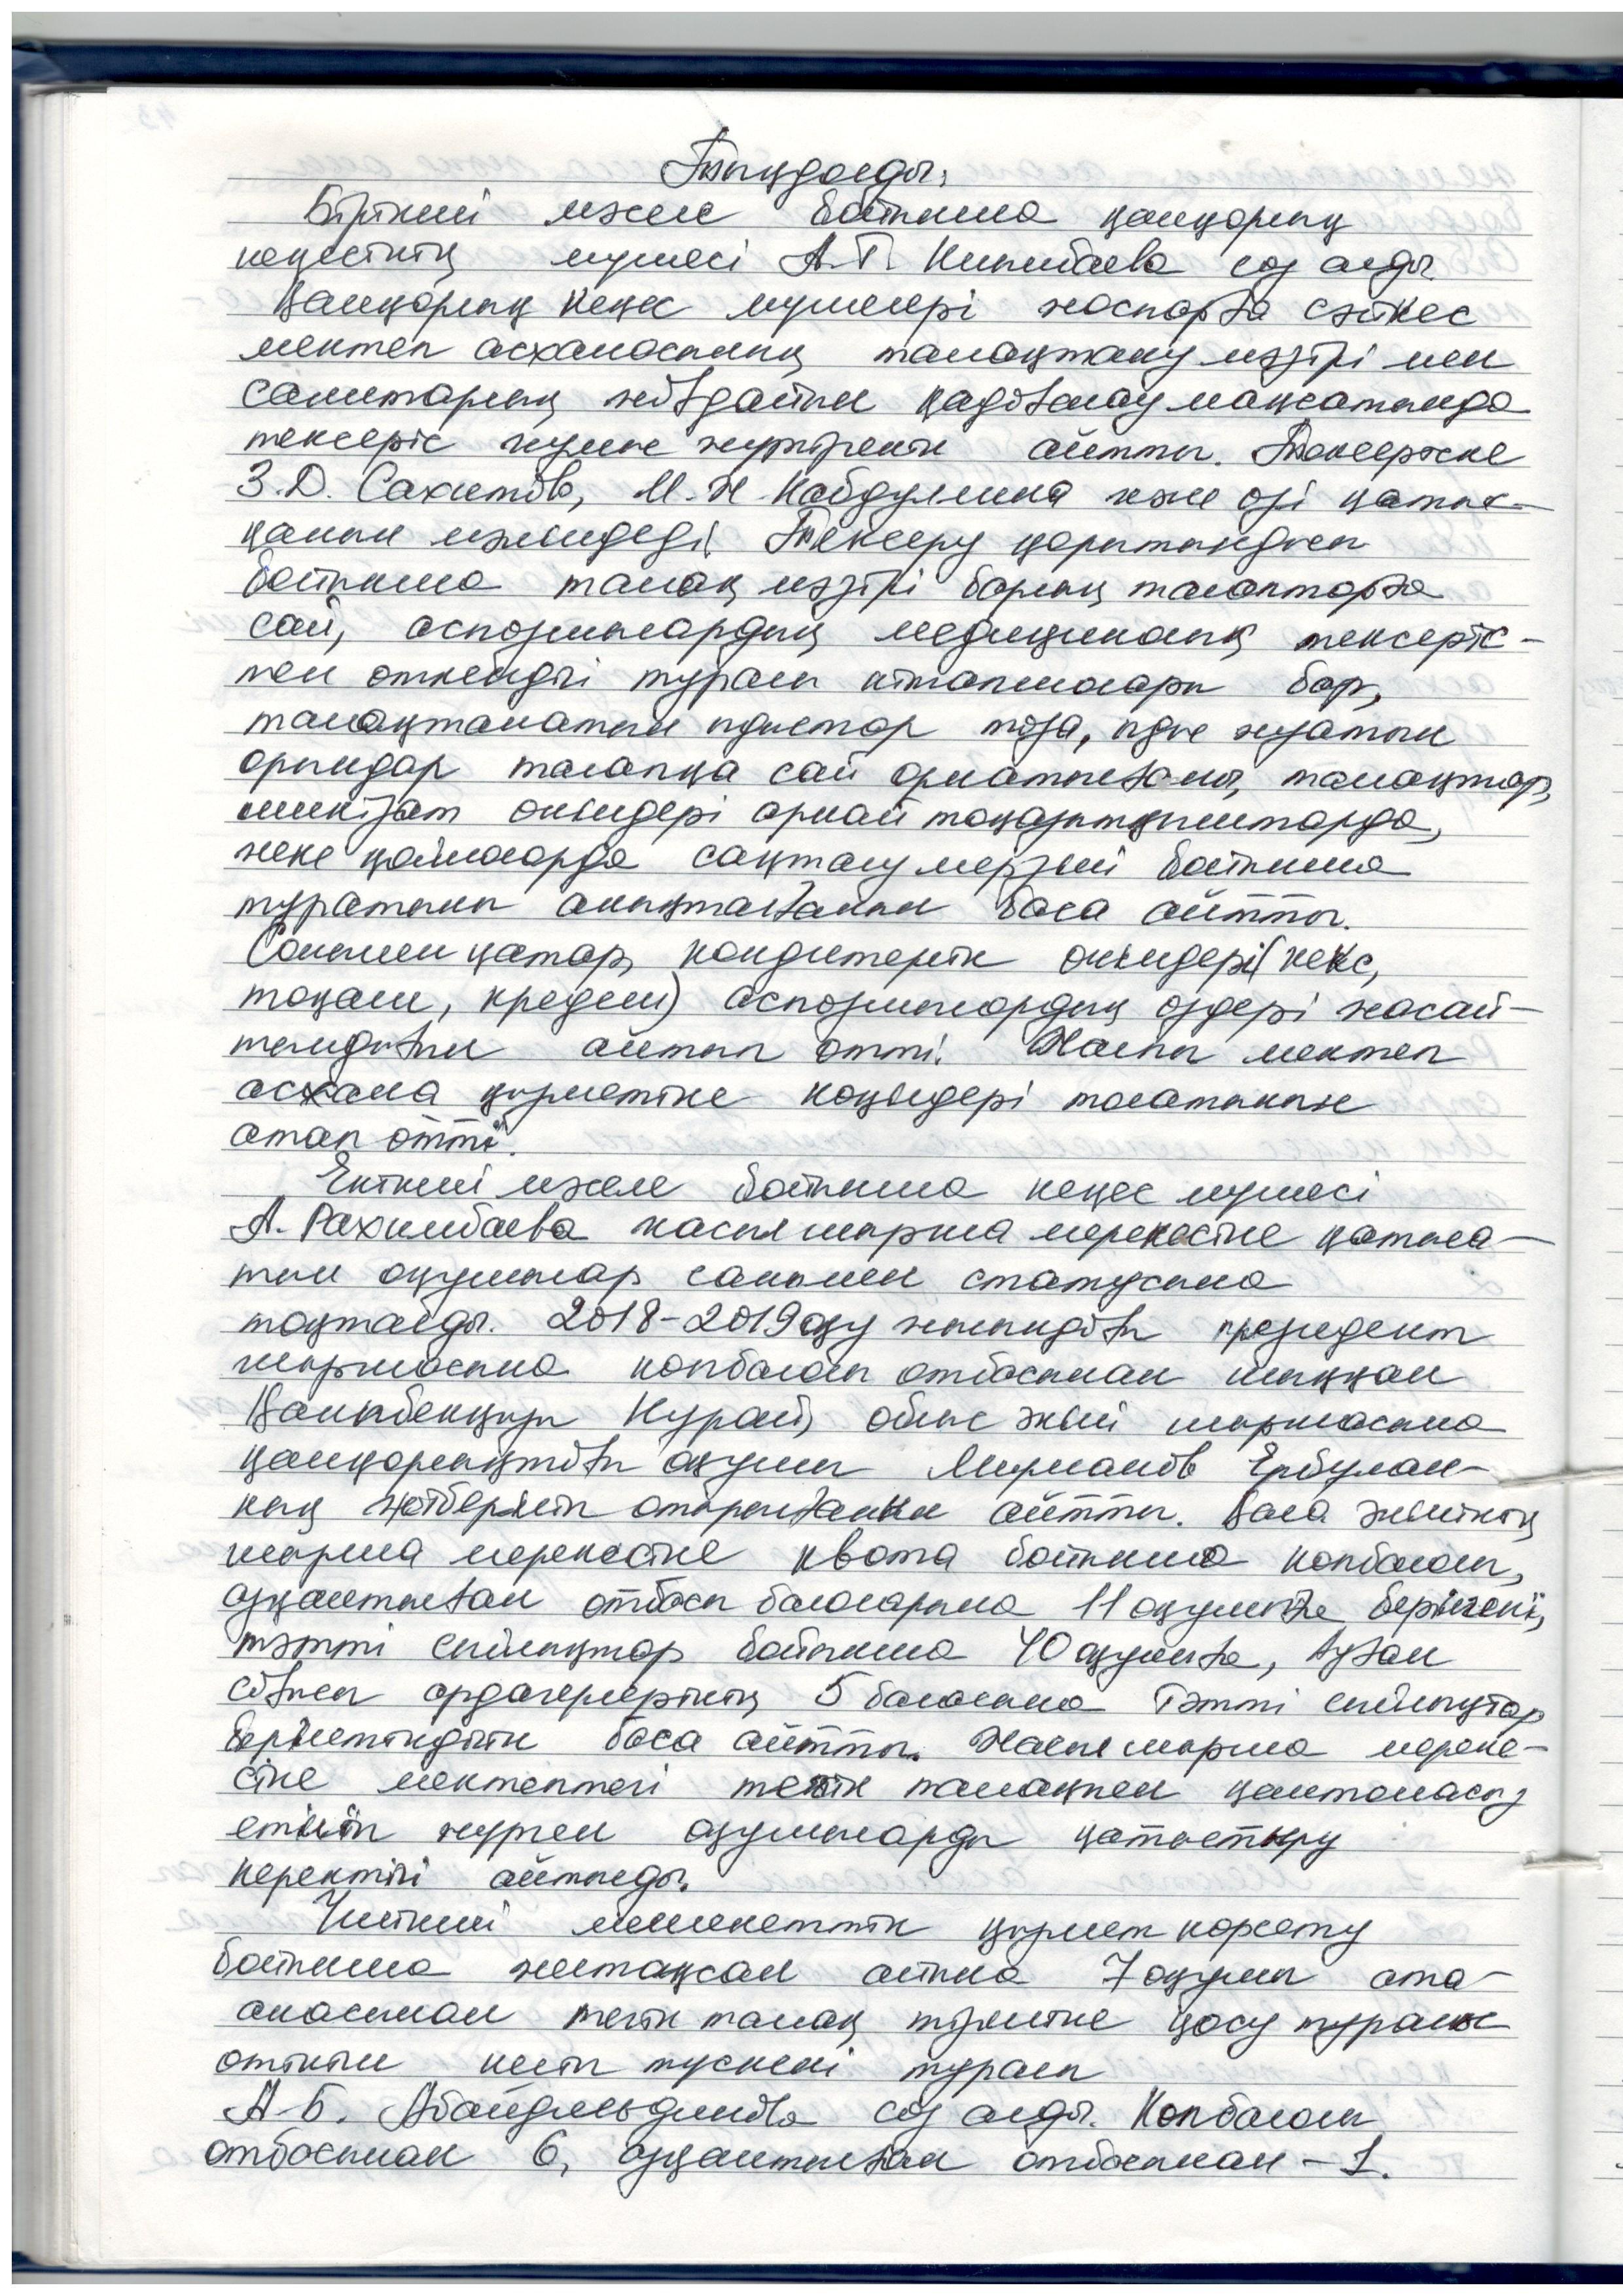 Тыңдалды:
Бірінші мәселе бойынша қамқорлық
кеңесінің мүшесі А.Т. Кипшбаева сөз алды
Қамқорлық кеңес мүшелері жоспарға сәйкес
мектеп асханасының тамақтану мәзірі мен
санитарлық жағдайын қадағалау мақсатында
тексеріс жұмыс жүргізгенін айтты. Тексеріске
З.Д. Сахитова, М.Н. Кабдулина және өзі қатыс-
қанын мәлімдеді. Тексеру қорытындысы
бойынша тамақ мәзірі барлық талаптарға
сай, аспазшылардың медициналық тексеріс-
тен өткендігі туралы кітапшалары бар,
тамақтанатын ыдыстар таза, ыдыс жуатын
орындар талапқа сай орнатылғаны, тамақтар,
шикізат өнімдері арнай тоңазытқыштарда,
жеке қоймаларда сақталу мерзімі бойынша
тұратыны анықталғанын баса айтты.
Сонымен қатар, кондитерлік өнімдері (кекс,
тоқаш, крендель) аспазшылардың өздері жасай-
тындығын айтып өтті. Жалпы мектеп
асхана қызметіне көңілдері толатынын
атап өтті.
Екінші мәселе бойынша кеңес мүшесі
А. Рахимбаева жаңа жылшырша мерекесіне қатыса-
тын оқушылар санымен статусына
тоқталды. 2018-2019 оқу жылындағы президент
шыршасына көпбалалы отбасынан шыққан
Қалыбекқызы Нұрай, облыс әкімі шыршасына
қамқорлықтағы оқушы Мирманов Ербұлан-
ның жіберіліп отырғанын айтты. Қала әкімінің
шырша мерекесіне квота бойынша көпбалалы,
аз қамтылған отбасы балаларына 11 оқушыға берілгені,
тәтті сыйлықтар бойынша 40 оқушыға, Ауған
соғысы ардагерлерінің 5 баласына тәтті сыйлықтар
берілетіндігін баса айтты. Жаңа жылшырша мереке-
сіне мектептегі тегін тамақпен қамтамасыз
етіліп жүрген оқушыларды қатыстыру
керектігі айтылды.
Үшінші мемлекеттік қызмет көрсету
бойынша желтоқсан айына 7 оқушы ата-
анасынан тегін тамақ тізіміне қосу туралы
өтініш келіп түскені туралы
А.Б. Абайдильдинова сөз алды. Көпбалалы
отбасынан 6, аз қамтылған отбасынан – 1.